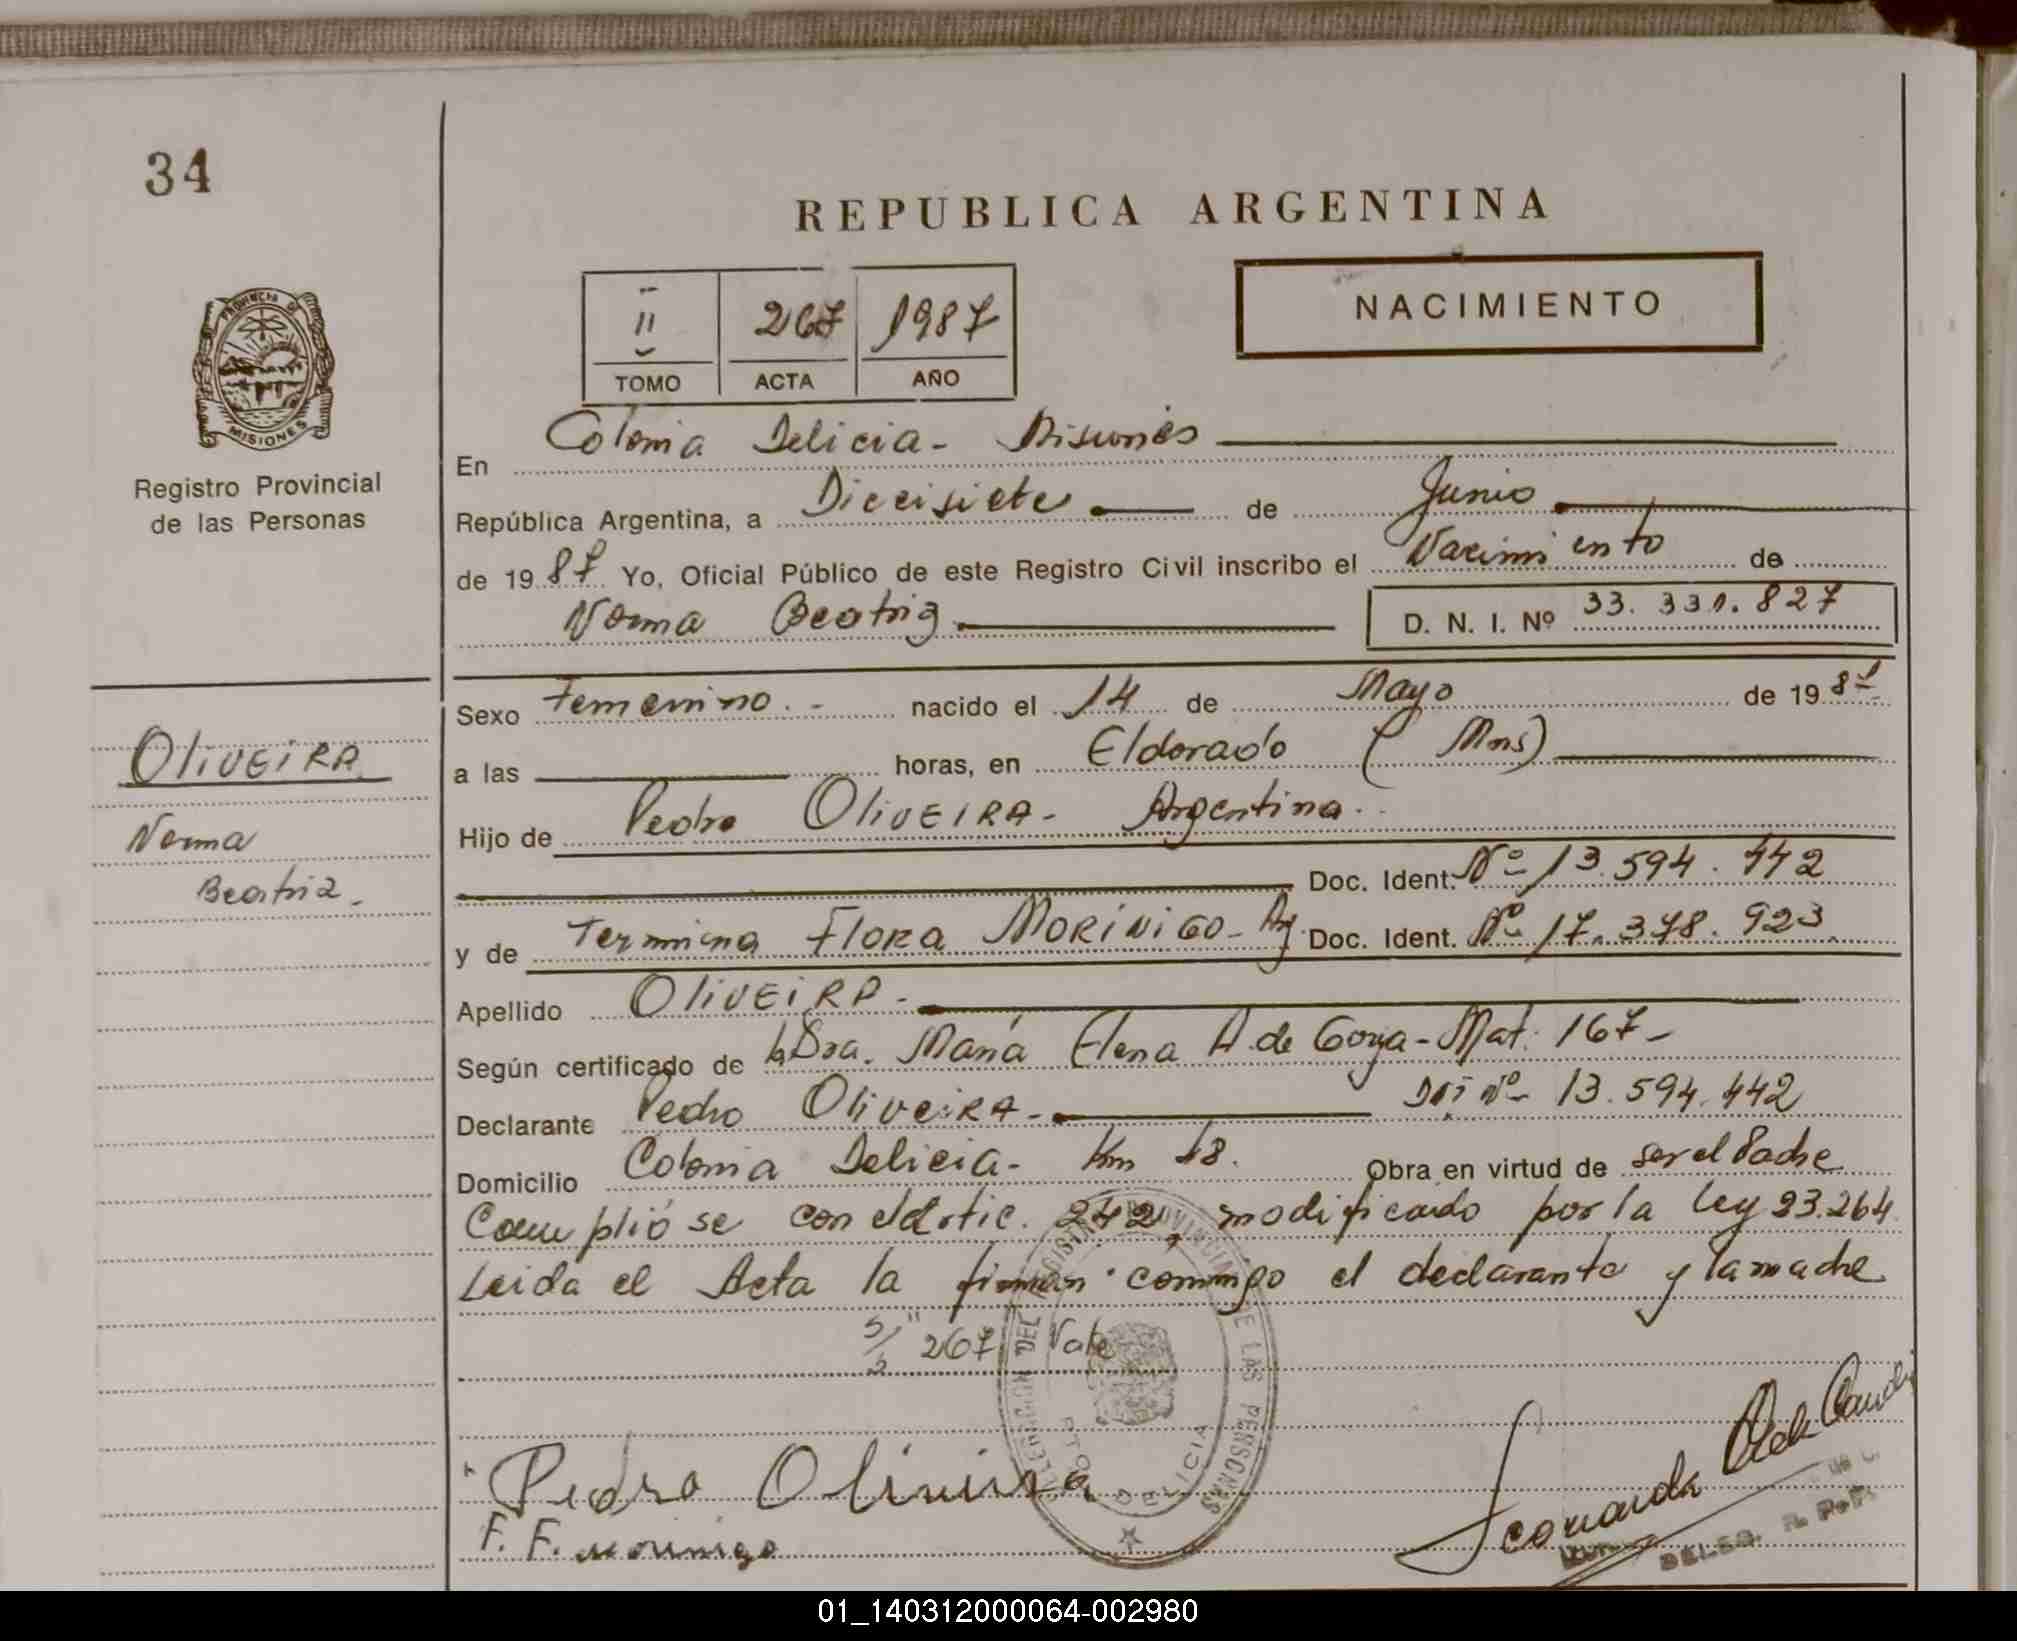 34
REPUBLICA ARGENTINA
II
267
1987
NACIMIENTO
TOMO
ACTA
AÑO
PROVINCIA DE
MISIONES
Registro Provincial
de las Personas
En Colonia Delicia - Misiones
República Argentina, a Diecisiete de Junio
de 19 87 Yo, Oficial Público de este Registro Civil inscribo el Nacimiento de
Norma Beatriz D. N. I. Nº 33.331.827
Sexo Femenino.- nacido el 14 de Mayo de 19 87
OLIVEIRA
a las horas, en Eldorado (Mns)
Norma
Hijo de Pedro OLIVEIRA - Argentina.
Beatriz.
Doc. Ident. Nº 13.594.442
y de Termina Flora MORINIGO - Arg. Doc. Ident. Nº 17.378.923
Apellido OLIVEIRA -
Según certificado de la Dra. María Elena A. de Gorja - Mat. 167 -
Declarante Pedro OLIVEIRA - DNI Nº 13.594.442
Domicilio Colonia Delicia - Km 18. Obra en virtud de ser el Padre
Cumplióse con el Artic. 242, modificado por la Ley 23.264
Leida el Acta la firman conmigo el declarante y la madre
S/ 267 Vale
Pedro Oliveira
F. F. Morinigo
DELEGACION DEL REGISTRO PROVINCIAL DE LAS PERSONAS
PTO DELICIA
DELEG. R. P. P.
01_140312000064-002980